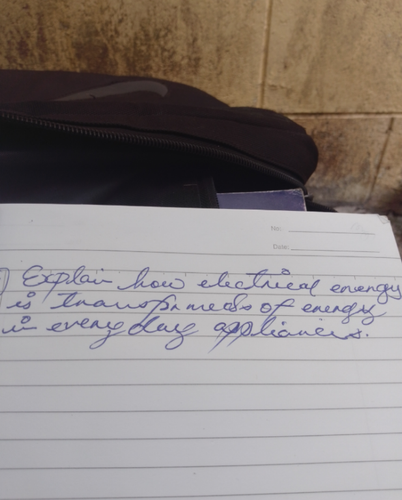 No:
Date:
Explain how electrical energy
is transfrmeds of energy
in every day appliances.